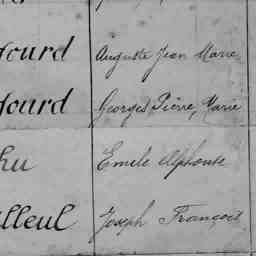 Jourd Auguste Jean Marie
Jourd Georges, Pierre, Marie
hu Emile Alphonse
lleul Joseph François